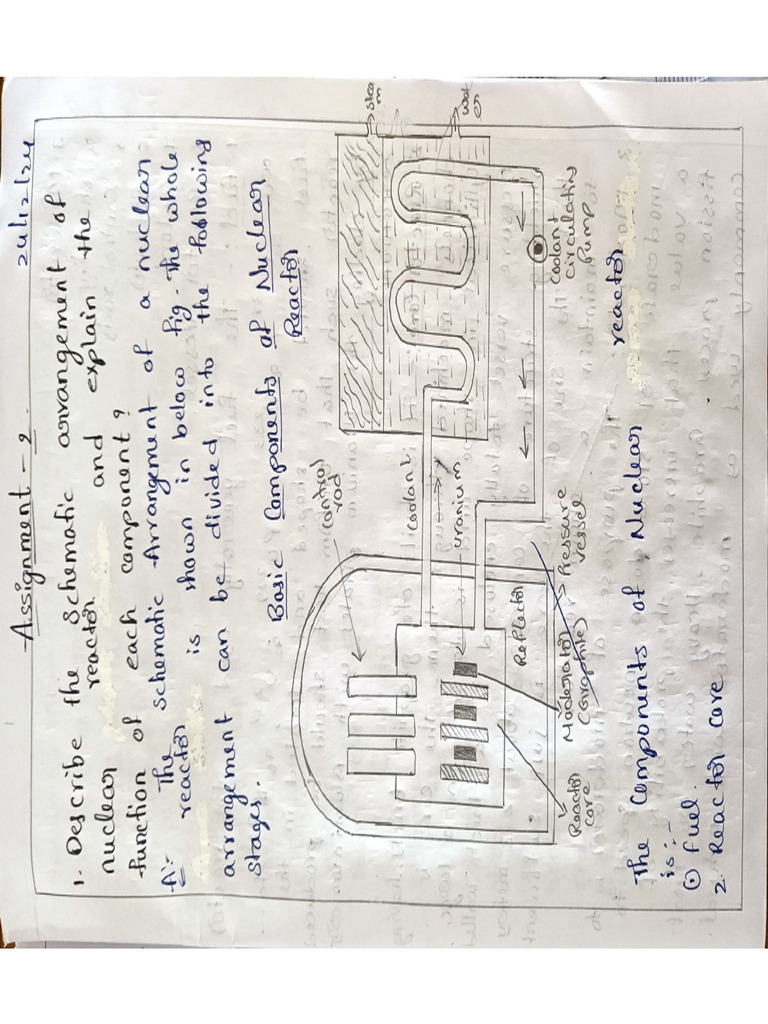 24/12/24
Assignment - 2
1. Describe the schematic arrangement of
nuclear reactor and explain the
function of each component?
A:- The schematic Arrangement of a nuclear
reactor is shown in below fig. The whole
arrangement can be divided into the following
stages.
Basic Components of Nuclear
Reactor
Control
rod
Coolant
uranium
steam
water
Coolant
circulating
Pump
Reflector
Pressure
vessel
Moderator
(Graphite)
Reactor
core
The Components of Nuclear reactor
is:-
① fuel.
2. Reactor core